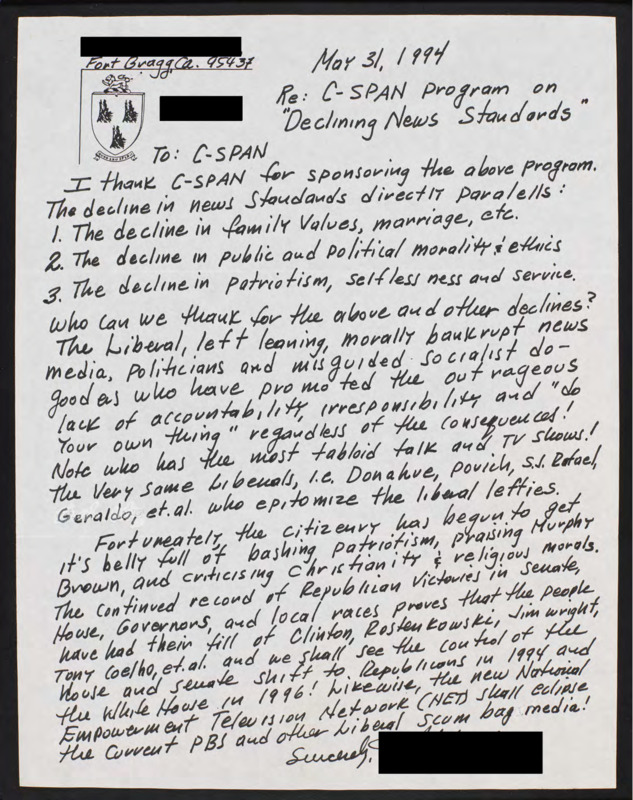 Fort Bragg, Ca. 95437
May 31, 1994
Re: C-SPAN Program on
"Declining News Standards"
To: C-SPAN
I thank C-SPAN for sponsoring the above program.
The decline in news Standards directly Paralells:
1. The decline in family Values, marriage, etc.
2. The decline in public and Political morality & ethics
3. The decline in Patriotism, selflessness and service.
Who can we thank for the above and other declines?
The Liberal, left leaning, morally bankrupt news
media, Politicians and misguided socialist do-
gooders who have promoted the outrageous
lack of accountability, irresponsibility and "do
Your own thing" regardless of the consequences!
Note who has the most tabloid talk and TV shows!
the Very Same Liberals, i.e. Donahue, Povich, S.S. Rafael,
Geraldo, et.al. who epitomize the liberal lefties.
Fortuneately, the citizenry has begun to get
it's belly full of bashing patriotism, praising Murphy
Brown, and criticising Christianity & religious morals.
The continued record of Republican Victories in Senate,
House, Governors, and local races proves that the people
have had their fill of Clinton, Rostenkowski, Jim Wright,
Tony Coelho, et.al. and we shall see the control of the
House and Senate shift to Republicans in 1994 and
the White House in 1996! Likewise, the new National
Empowerment Television Network (NET) shall eclipse
the current PBS and other Liberal Scum bag media!
Sincerely,